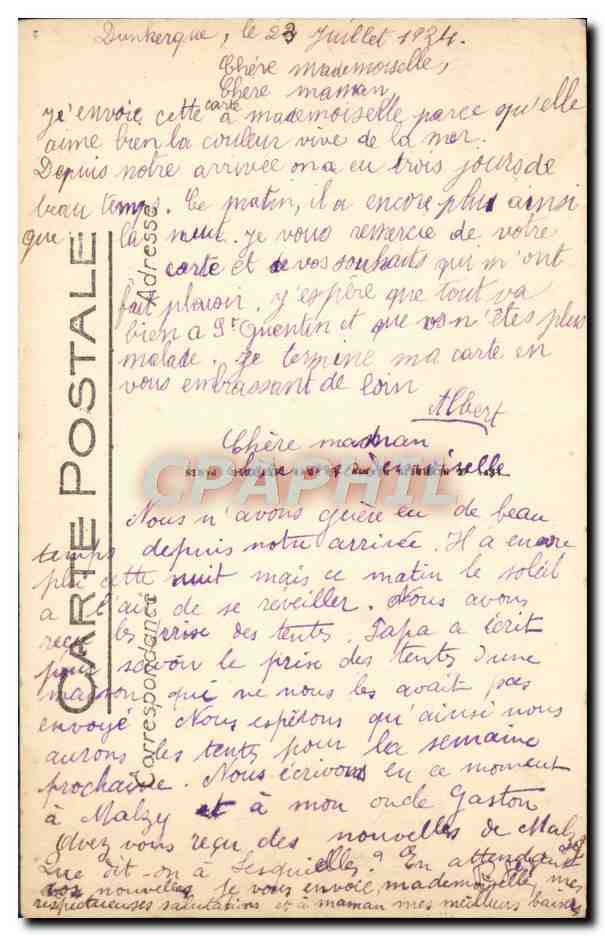 Dunkerque, le 23 Juillet 1934.
Chère mademoiselle,
Chère maman,
J'envoie cette carte à mademoiselle parce qu'elle
aime bien la couleur vive de la mer.
Depuis notre arrivée on a eu trois jours de
beau temps. Ce matin, il a encore plu ainsi
que la nuit. Je vous remercie de votre
carte et de vos souhaits qui m'ont
fait plaisir. J'espère que tout va
bien a St Quentin et que vous n'êtes plus
malade. Je termine ma carte en
vous embrassant de loin
Albert
Chère maman
Chère mademoiselle
Nous n'avons guère eu de beau
temps depuis notre arrivée. Il a encore
plu cette nuit mais ce matin le soleil
a l'air de se réveiller. Nous avons
reçu les prise des tentes. Papa a écrit
pour savoir le prise des tentes d'une
maison qui ne nous les avait pas
envoyé. Nous espérons qu'ainsi nous
aurons les tentes pour la semaine
prochaine. Nous écrivons en ce moment
à Malzy et à mon oncle Gaston
Avez vous reçu des nouvelles de Malzy
Que dit-on à Lesquielles? En attendant
vos nouvelles je vous envoie, mademoiselle, mes
respectueuses salutations et à maman mes meilleurs baisers
CARTE POSTALE
Correspondance
Adresse
CPAPHIL